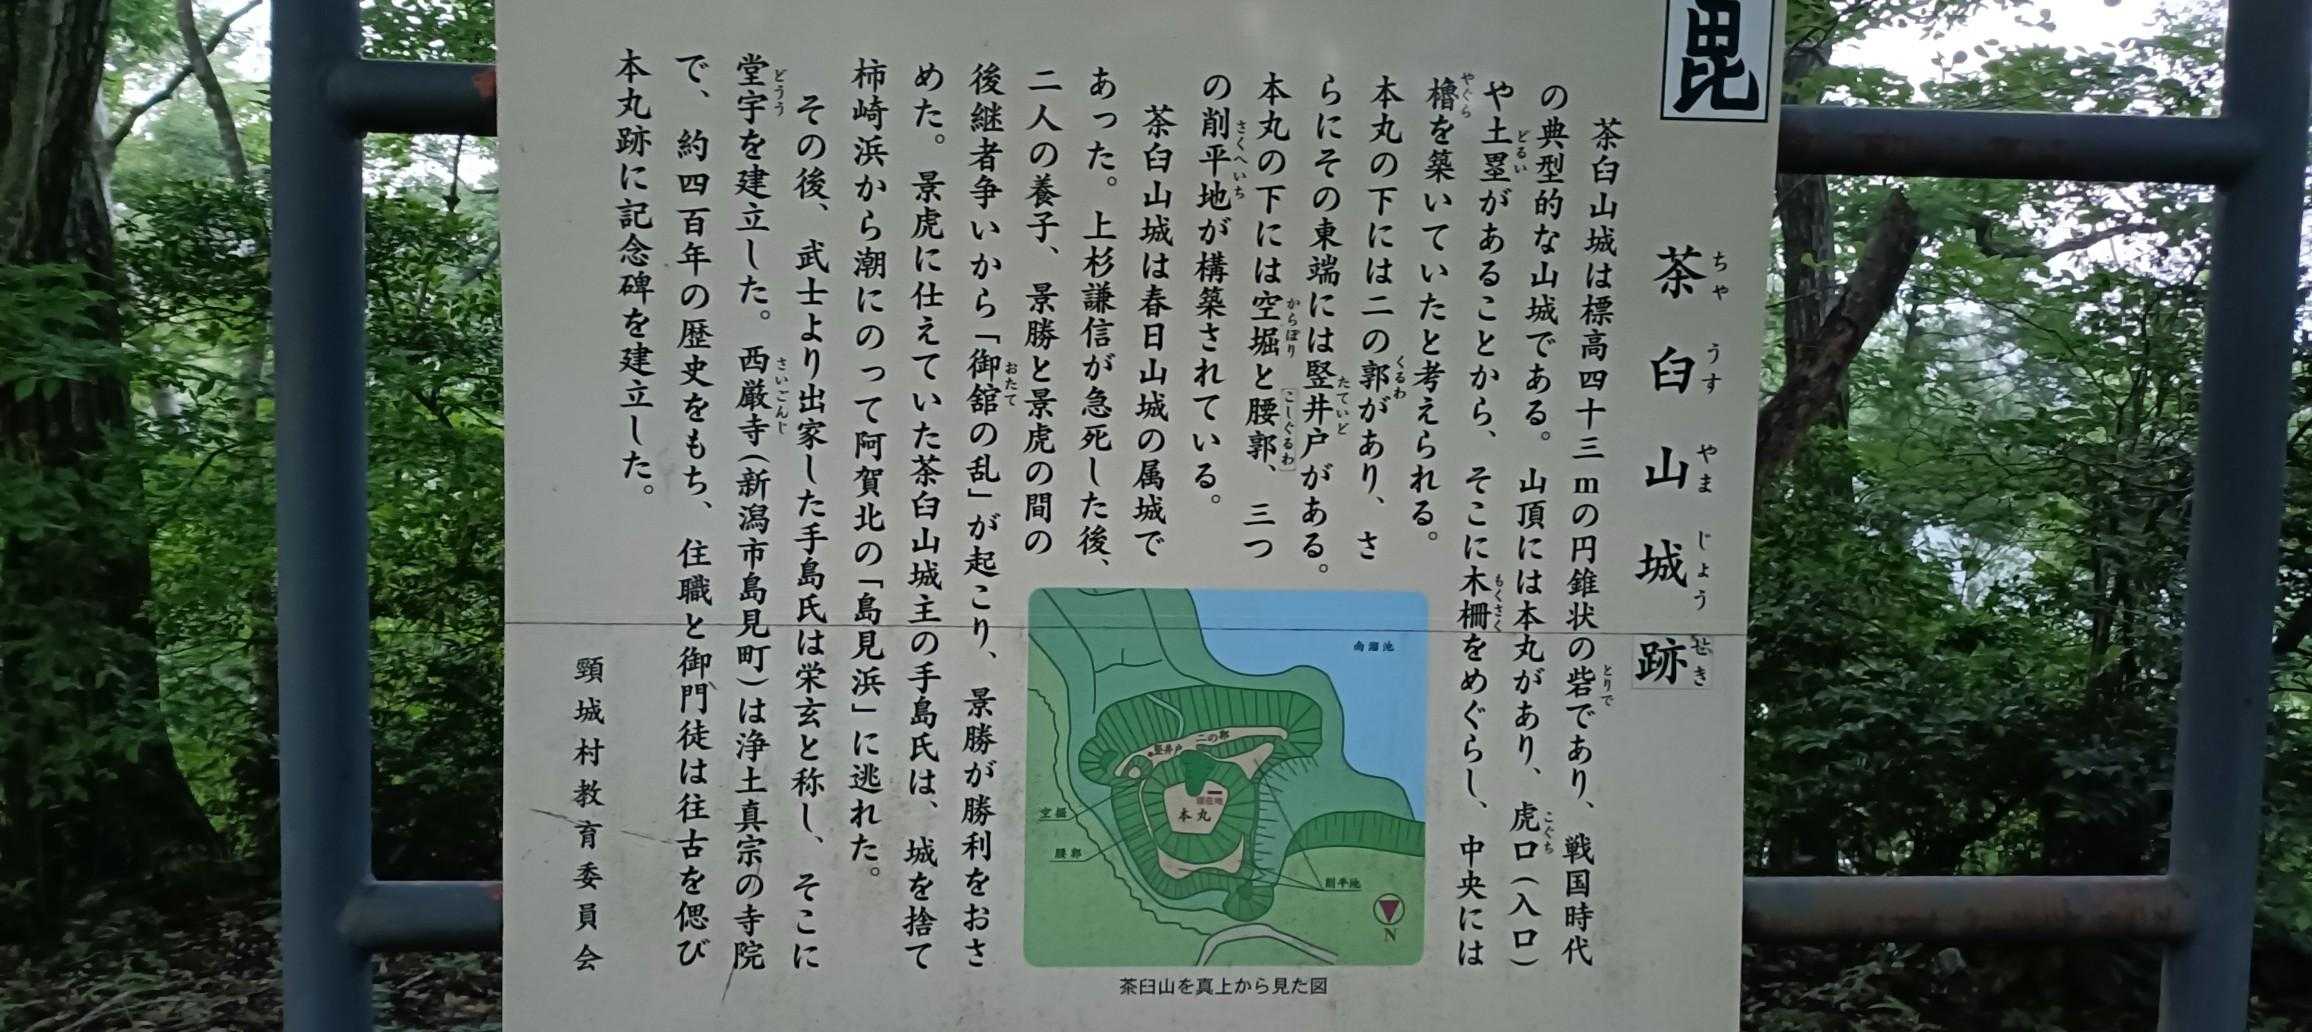 毘
茶臼山城跡
ちゃ うす やま じょう せき
茶臼山城は標高四十三mの円錐状の砦であり、戦国時代
とりで
の典型的な山城である。山頂には本丸があり、虎口(入口)
こぐち
や土塁があることから、そこに木柵をめぐらし、中央には
どるい もくさく
櫓を築いていたと考えられる。
やぐら
本丸の下には二の郭があり、さ
くるわ
らにその東端には竪井戸がある。
たていど
本丸の下には空堀と腰郭、三つ
からぼり こしぐるわ
の削平地が構築されている。
さくへいち
茶臼山城は春日山城の属城で
あった。上杉謙信が急死した後、
二人の養子、景勝と景虎の間の
後継者争いから「御舘の乱」が起こり、景勝が勝利をおさ
おたて
めた。景虎に仕えていた茶臼山城主の手島氏は、城を捨て
柿崎浜から潮にのって阿賀北の「島見浜」に逃れた。
その後、武士より出家した手島氏は栄玄と称し、そこに
堂宇を建立した。西厳寺(新潟市島見町)は浄土真宗の寺院
どうう さいごんじ
で、約四百年の歴史をもち、住職と御門徒は往古を偲び
本丸跡に記念碑を建立した。
頸城村教育委員会
竪井戸
二の郭
現在地
本丸
空堀
腰郭
削平地
N
茶臼山を真上から見た図